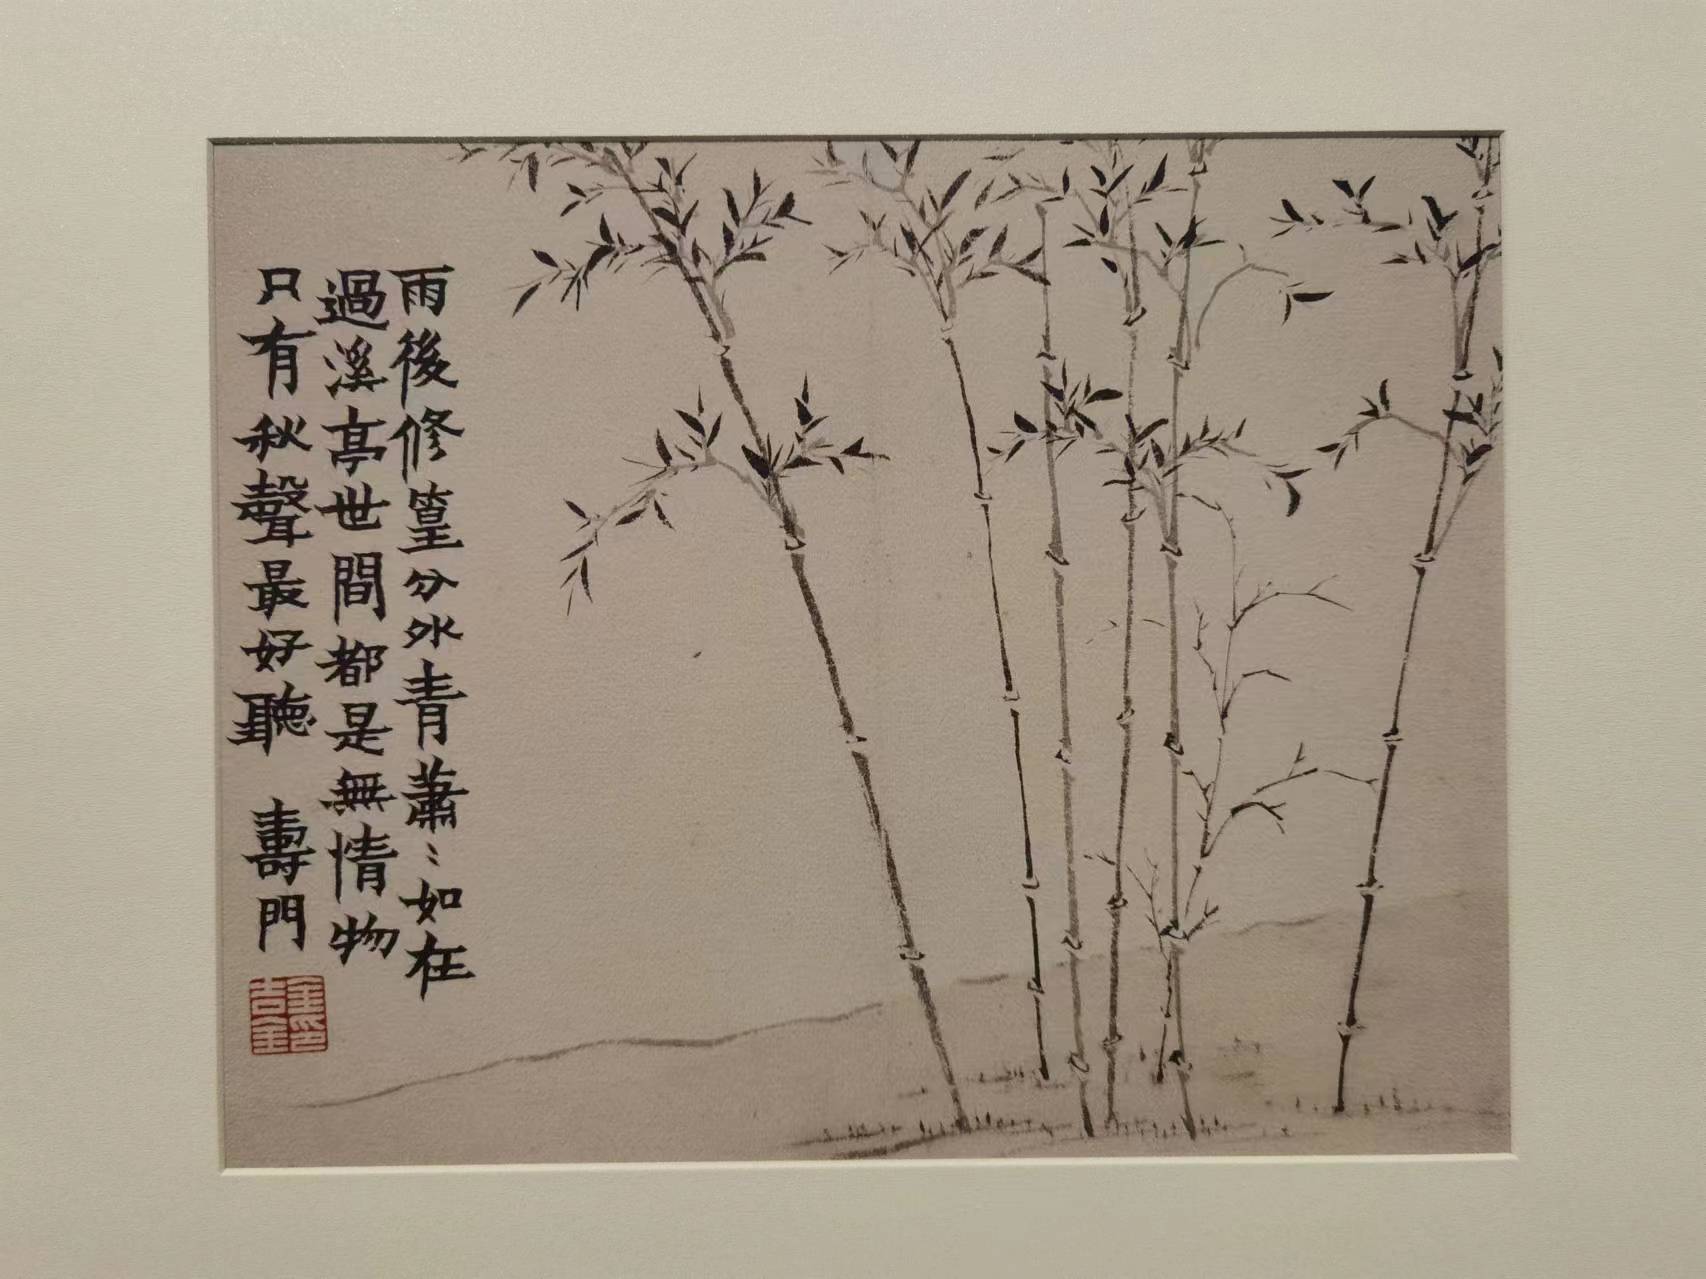 雨後修篁分外青蕭〻如在
過溪亭世間都是無情物
只有秋聲最好聽 壽門
金吉金印